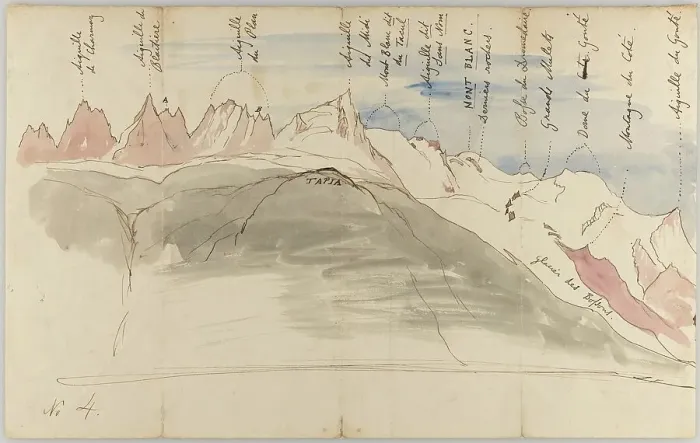 Aiguille
de Charmoz
Aiguille de
Blaitière
Aiguille
du Plan
Aiguille
du Midi
Mont Blanc du
du Tacul
Aiguille dit
Sans Nom
MONT BLANC.
Derniers rochers.
Bosse du Dromedaire
Grands Mulets
Dome du Gouté
Montagne du Coté.
Aiguille du Gouté
A
B
TAPIA
glacier des Bossons.
No 4.